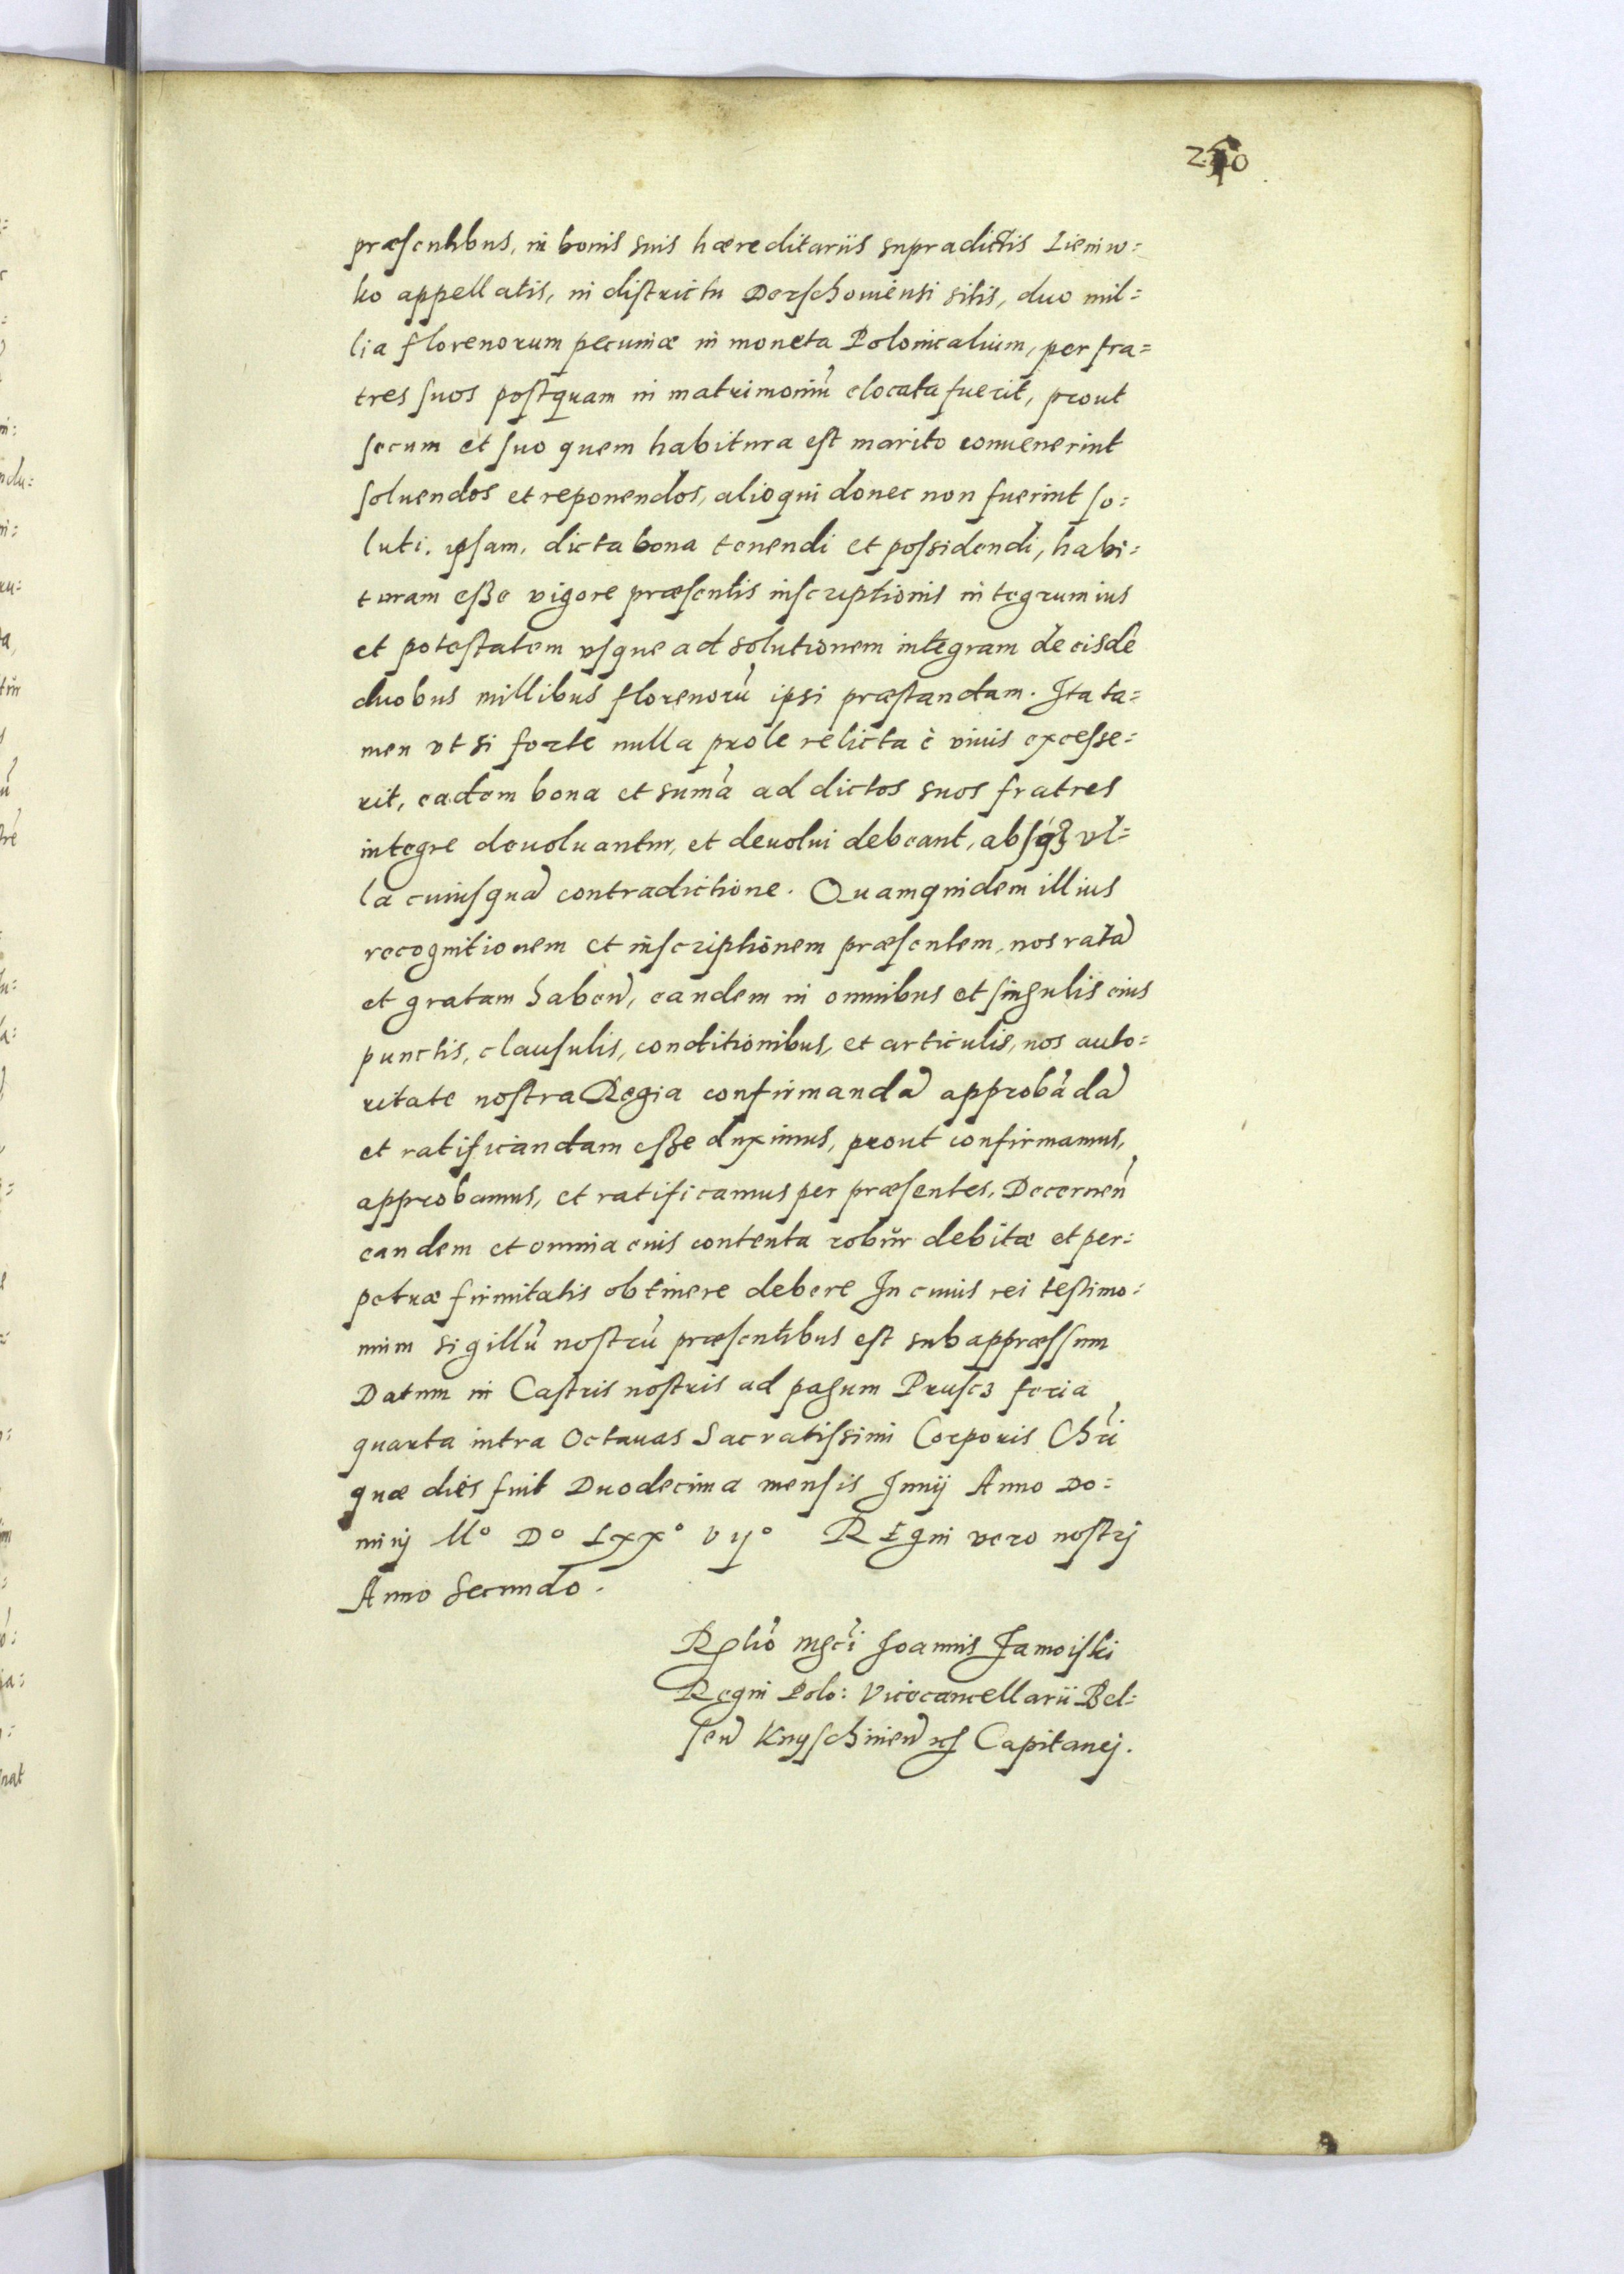 præsentibus, in bonis suis hæreditariis supradictis Lieniw=
ko appellatis, in districtu Derschouiensi sitis, duo mil=
lia florenorum pecuniæ in moneta Polonicalium, per fra=
tres suos postquam in matrimoniũ elocata fuerit, prout
secum et suo quem habitura est marito conuenerint
soluendos et reponendos, alioqui donec non fuerint so=
luti. ipsam, dicta bona tenendi et possidendi, habi=
turam esse vigore præsentis inscriptionis integrum ius
et potestatem vsque ad solutionem integram de eisdẽ
duobus millibus florenorũ ipsi præstandam. Ita ta=
men vt si forte nulla prole relicta è viuis excesse=
rit, eadem bona et sumã ad dictos suos fratres
integre deuoluantur, et deuolui debeant, absqꝫ vl=
la cuiusquã contradictione. Quamquidem illius
recognitionem et inscriptionem præsentem, nos ratã
et gratam haben̄, eandem in omnibus et singulis eius
punctis, clausulis, conditionibus, et articulis, nos auto=
ritate nostra Regia confirmandã approbãdã
et ratificandam esse duximus, prout confirmamus,
approbamus, et ratificamus per præsentes. Decernen̄
eandem et omnia eius contenta robur debitæ et per=
petuæ firmitatis obtinere debere In cuius rei testimo=
nium sigillũ nostrũ præsentibus est subappræssum
Datum in Castris nostris ad pagum Pruscz feria
quarta intra Octauas Sacratissimi Corporis Chr̃i
quæ dies fuit Duodecima mensis Junij Anno Do=
minij Mo Do Lxxo vijo REgni vero nostrj
Anno Secundo.
Rel̃io mg̃ci Joannis Zamoiski
Regni Polo: Vicecancellarii Bel=
sen̄ Knyschinen̄ Capitanej.